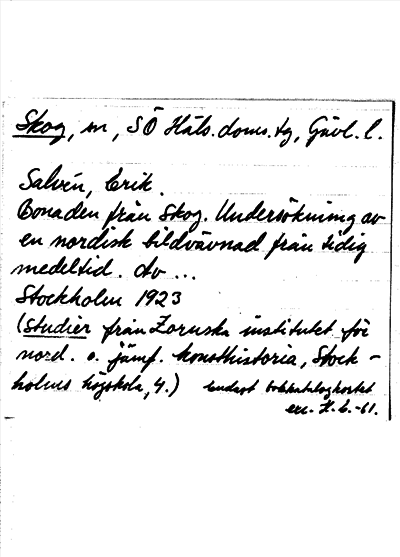 Skog, sn, SÖ Häls. doms. tg, Gävl. l.
Salvén, Erik.
Bonaden från Skog. Undersökning av
en nordisk bildvävnad från tidig
medeltid. Av ...
Stockholm 1923
(Studier från Zornska institutet för
nord. o. jämf. konsthistoria, Stock-
holms högskola, 4.) endast bokkatalogkortet
exc. H. L. -61.